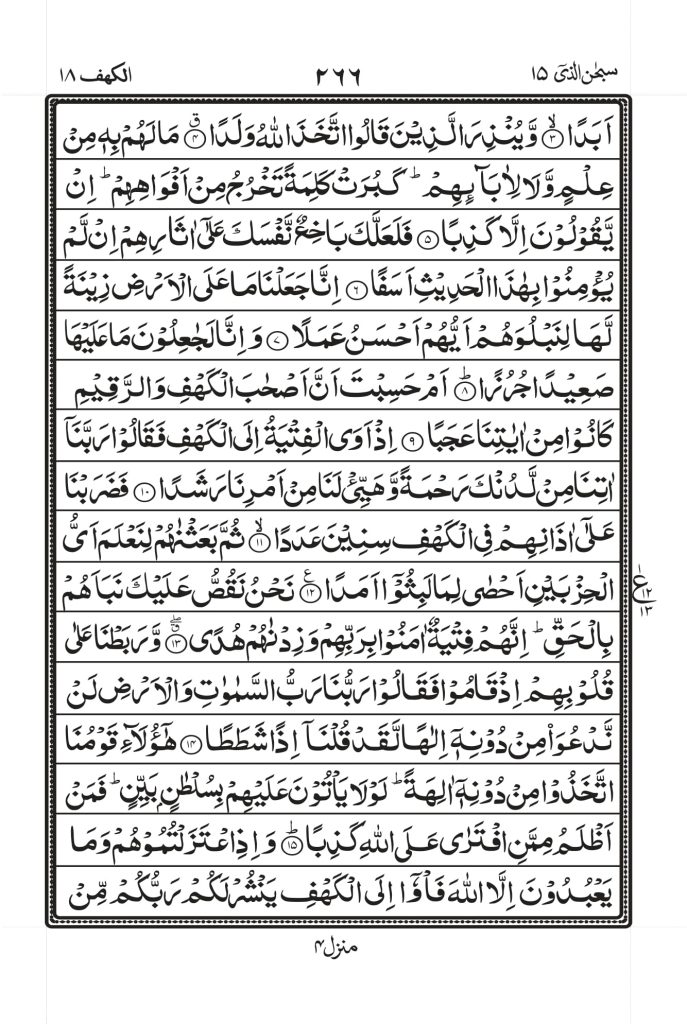 سبحٰن الذیٓ ۱۵ ۲۶۶ الکهف ۱۸
اَبَدًا ﴿۳﴾ۙ وَّیُنْذِرَ الَّذِیْنَ قَالُوا اتَّخَذَ اللّٰهُ وَلَدًا ﴿۴﴾ۗ مَا لَهُمْ بِهٖ مِنْ
عِلْمٍ وَّلَا لِاٰبَآىِٕهِمْ ؕ كَبُرَتْ كَلِمَةً تَخْرُجُ مِنْ اَفْوَاهِهِمْ ؕ اِنْ
یَّقُوْلُوْنَ اِلَّا كَذِبًا ﴿۵﴾ فَلَعَلَّكَ بَاخِعٌ نَّفْسَكَ عَلٰۤی اٰثَارِهِمْ اِنْ لَّمْ
یُؤْمِنُوْا بِهٰذَا الْحَدِیْثِ اَسَفًا ﴿۶﴾ اِنَّا جَعَلْنَا مَا عَلَی الْاَرْضِ زِیْنَةً
لَّهَا لِنَبْلُوَهُمْ اَیُّهُمْ اَحْسَنُ عَمَلًا ﴿۷﴾ وَ اِنَّا لَجٰعِلُوْنَ مَا عَلَیْهَا
صَعِیْدًا جُرُزًا ﴿۸﴾ؕ اَمْ حَسِبْتَ اَنَّ اَصْحٰبَ الْكَهْفِ وَ الرَّقِیْمِ
كَانُوْا مِنْ اٰیٰتِنَا عَجَبًا ﴿۹﴾ اِذْ اَوَی الْفِتْیَةُ اِلَی الْكَهْفِ فَقَالُوْا رَبَّنَاۤ
اٰتِنَا مِنْ لَّدُنْكَ رَحْمَةً وَّ هَیِّئْ لَنَا مِنْ اَمْرِنَا رَشَدًا ﴿۱۰﴾ فَضَرَبْنَا
عَلٰۤی اٰذَانِهِمْ فِی الْكَهْفِ سِنِیْنَ عَدَدًا ﴿۱۱﴾ۙ ثُمَّ بَعَثْنٰهُمْ لِنَعْلَمَ اَیُّ
الْحِزْبَیْنِ اَحْصٰی لِمَا لَبِثُوْۤا اَمَدًا ﴿۱۲﴾ع نَحْنُ نَقُصُّ عَلَیْكَ نَبَاَهُمْ
ع ۱ ۱۲ ۱۳
بِالْحَقِّ ؕ اِنَّهُمْ فِتْیَةٌ اٰمَنُوْا بِرَبِّهِمْ وَ زِدْنٰهُمْ هُدًی ﴿۱۳﴾ۖۗ وَّ رَبَطْنَا عَلٰی
قُلُوْبِهِمْ اِذْ قَامُوْا فَقَالُوْا رَبُّنَا رَبُّ السَّمٰوٰتِ وَ الْاَرْضِ لَنْ
نَّدْعُوَا۟ مِنْ دُوْنِهٖۤ اِلٰهًا لَّقَدْ قُلْنَاۤ اِذًا شَطَطًا ﴿۱۴﴾ هٰۤؤُلَآءِ قَوْمُنَا
اتَّخَذُوْا مِنْ دُوْنِهٖۤ اٰلِهَةً ؕ لَوْ لَا یَاْتُوْنَ عَلَیْهِمْ بِسُلْطٰنٍۭ بَیِّنٍ ؕ فَمَنْ
اَظْلَمُ مِمَّنِ افْتَرٰی عَلَی اللّٰهِ كَذِبًا ﴿۱۵﴾ؕ وَ اِذِ اعْتَزَلْتُمُوْهُمْ وَ مَا
یَعْبُدُوْنَ اِلَّا اللّٰهَ فَاْوٗۤا اِلَی الْكَهْفِ یَنْشُرْ لَكُمْ رَبُّكُمْ مِّنْ
منزل ۴